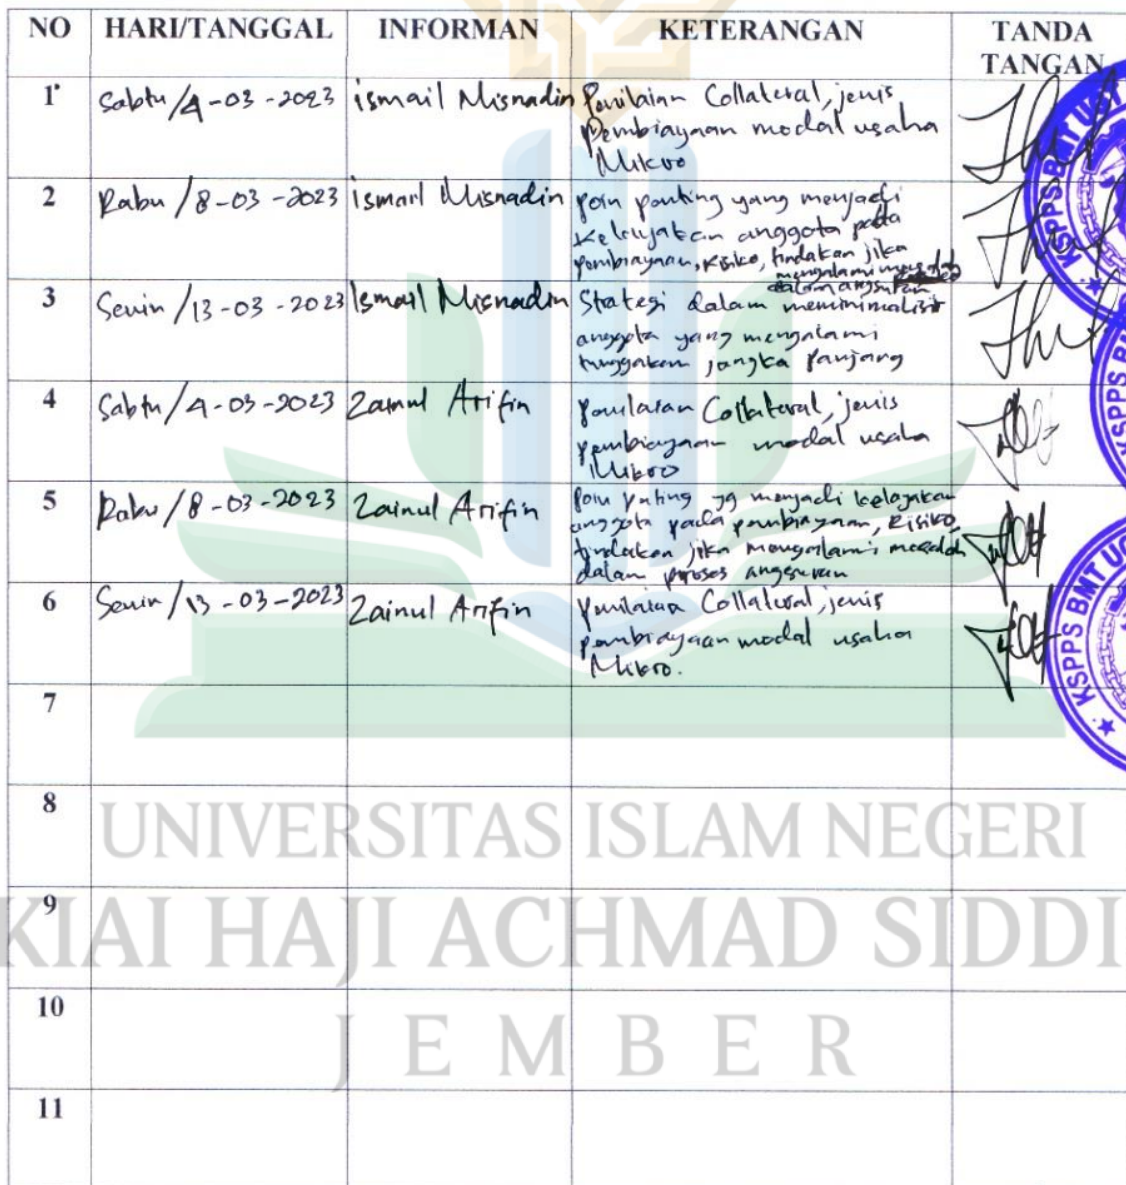 NO HARI/TANGGAL INFORMAN KETERANGAN TANDA
TANGAN
1 Sabtu /4-03-2023 ismail Misnadin Penilaian Collateral, jenis
Pembiayaan modal usaha
Mikro
2 Rabu /8-03-2023 Ismail Misnadin poin penting yang menjadi
Kelayakan anggota pada
pembiayaan, Risiko, tindakan jika
mengalami masalah
dalam angsuran
3 Senin /13-03-2023 Ismail Misnadin Strategi dalam meminimalisir
anggota yang mengalami
tunggakan jangka panjang
4 Sabtu/4-03-2023 Zainul Arifin penilaian Collateral, jenis
pembiayaan modal usaha
Mikro
5 Rabu /8-03-2023 Zainul Arifin Poin Penting yg menjadi kelayakan
anggota pada pembiayaan, Risiko,
tindakan jika mengalami masalah
dalam proses angsuran
6 Senin /13-03-2023 Zainul Arifin penilaian Collateral, jenis
pembiayaan modal usaha
Mikro.
7
8
9
10
11
KSPPS BMT UGT
KSPPS BM
KSPPS BMT UG
UNIVERSITAS ISLAM NEGERI
KIAI HAJI ACHMAD SIDDI
JEMBER